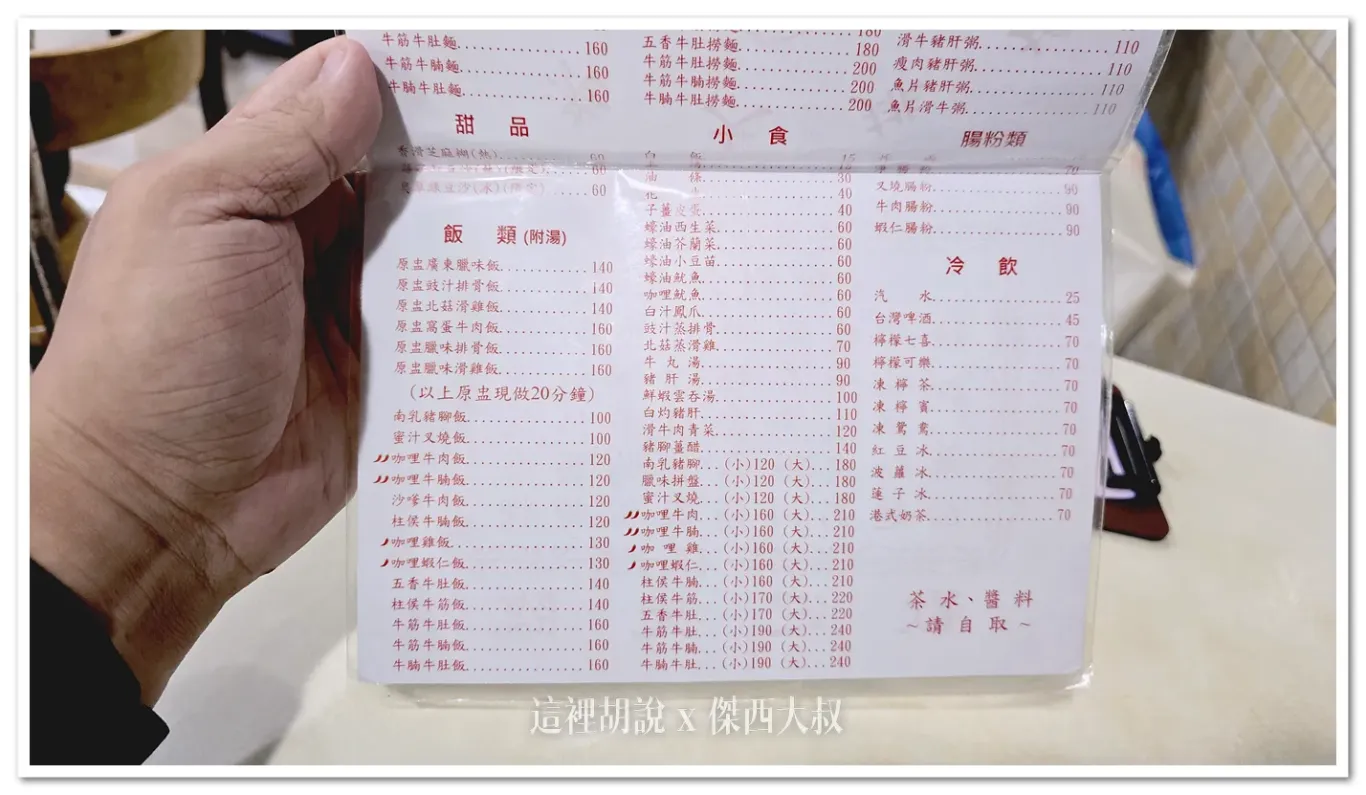 牛筋牛肚麵 160
牛筋牛腩麵 160
牛腩牛肚麵 160
甜 品
香滑芝麻糊(熱) 60
60
60
飯 類 (附湯)
原盅廣東臘味飯 140
原盅豉汁排骨飯 140
原盅北菇滑雞飯 140
原盅窩蛋牛肉飯 160
原盅臘味排骨飯 160
原盅臘味滑雞飯 160
(以上原盅現做20分鐘)
南乳豬腳飯 100
蜜汁叉燒飯 100
咖哩牛肉飯 120
咖哩牛腩飯 120
沙嗲牛肉飯 120
柱侯牛腩飯 120
咖哩雞飯 130
咖哩蝦仁飯 130
五香牛肚飯 140
柱侯牛筋飯 140
牛筋牛肚飯 160
牛筋牛腩飯 160
牛腩牛肚飯 160
180
五香牛肚撈麵 180
牛筋牛肚撈麵 200
牛筋牛腩撈麵 200
牛腩牛肚撈麵 200
小 食
白 飯 15
油 條 30
花 生 40
子薑皮蛋 40
蠔油西生菜 60
蠔油芥蘭菜 60
蠔油小豆苗 60
蠔油魷魚 60
咖哩魷魚 60
白汁鳳爪 60
豉汁蒸排骨 60
北菇蒸滑雞 70
牛丸湯 90
豬肝湯 90
鮮蝦雲吞湯 100
白灼豬肝 110
滑牛肉青菜 120
豬腳薑醋 140
南乳豬腳...(小)120 (大)...180
臘味拼盤...(小)120 (大)...180
蜜汁叉燒...(小)120 (大)...180
咖哩牛肉...(小)160 (大)...210
咖哩牛腩...(小)160 (大)...210
咖哩雞...(小)160 (大)...210
咖哩蝦仁...(小)160 (大)...210
柱侯牛腩...(小)160 (大)...210
柱侯牛筋...(小)170 (大)...220
五香牛肚...(小)170 (大)...220
牛筋牛肚...(小)190 (大)...240
牛筋牛腩...(小)190 (大)...240
牛腩牛肚...(小)190 (大)...240
滑牛豬肝粥 110
瘦肉豬肝粥 110
魚片豬肝粥 110
魚片滑牛粥 110
腸粉類
70
叉燒腸粉 90
牛肉腸粉 90
蝦仁腸粉 90
冷 飲
汽 水 25
台灣啤酒 45
檸檬七喜 70
檸檬可樂 70
凍檸茶 70
凍檸賓 70
凍鴛鴦 70
紅豆冰 70
菠蘿冰 70
蓮子冰 70
港式奶茶 70
茶水、醬料
~請自取~
這裡胡說 x 傑西大叔